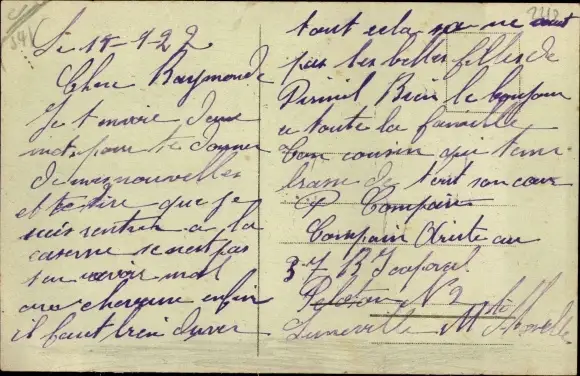 Le 18-4 22
Chere Raymonde
Je t envoie deux
mots pour te donner
de mes nouvelles
et te dire que je
suis rentrer a la
caserne se n est pas
san avoir mal
au enfin
il faut bien
tout cela ne vaut
pas les belles filles de
Bien le bonjour
a toute la famille
ton cousin qui t em
brasse de tout son cœur
Compain
Compain
37 R
Peloton N 2
Luneville Mthe Moselle